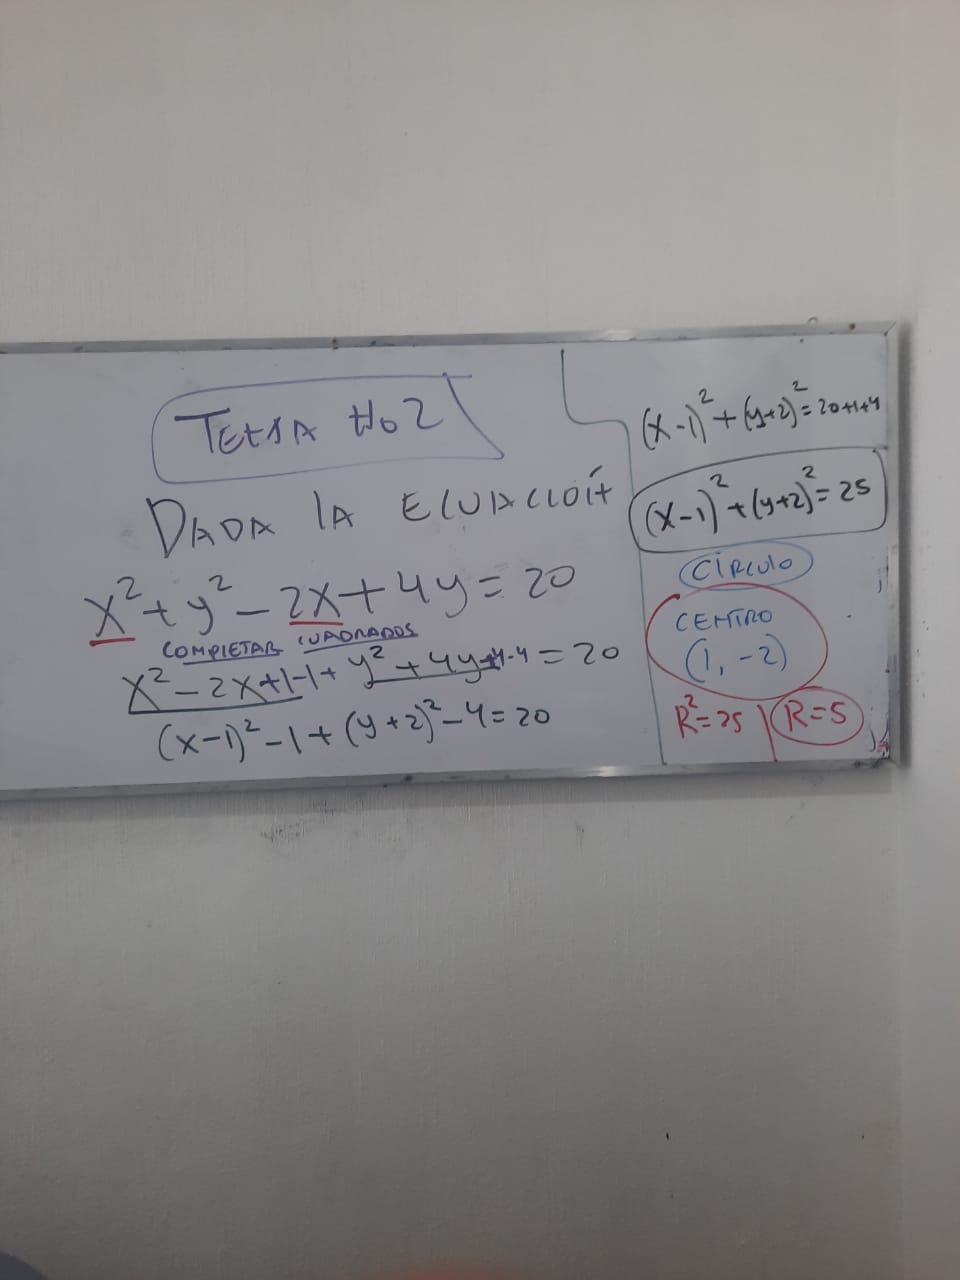 TEMA No 2
DADA LA ECUACIÓN
x² + y² - 2x + 4y = 20
COMPLETAR CUADRADOS
x² - 2x + 1 - 1 + y² + 4y + 4 - 4 = 20
(x-1)² - 1 + (y+2)² - 4 = 20
(x-1)² + (y+2)² = 20+1+4
(x-1)² + (y+2)² = 25
CÍRCULO
CENTRO
(1, -2)
R² = 25 | R = 5